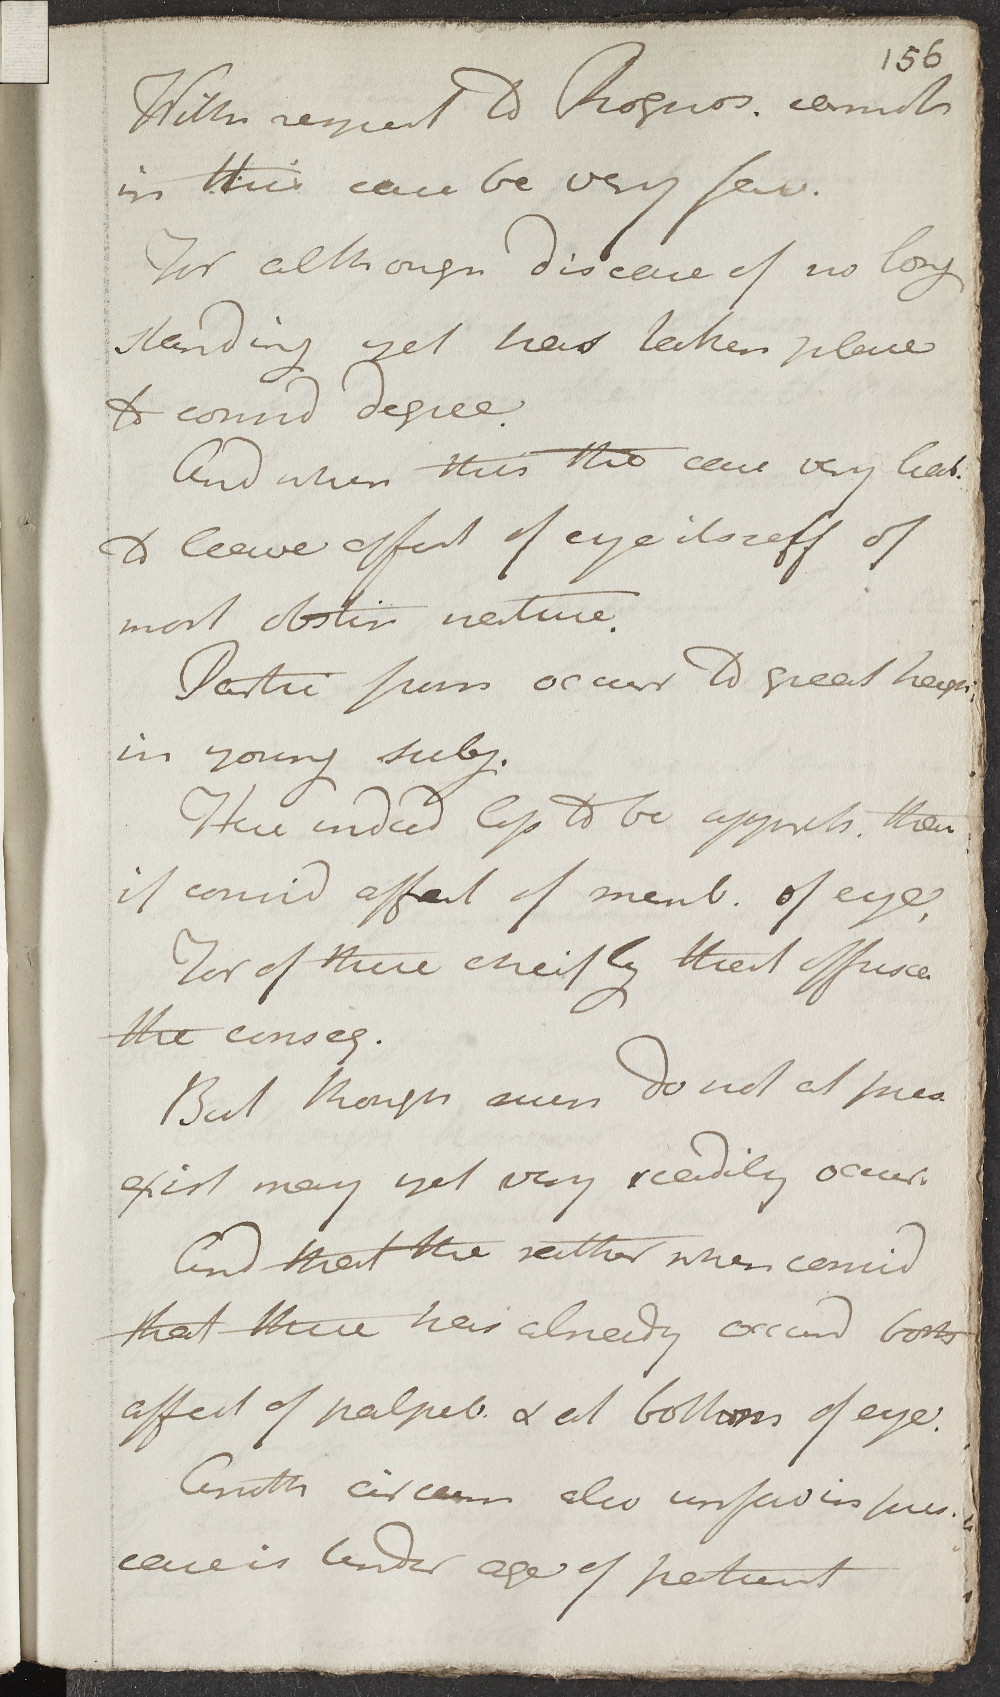 156
With respect to Prognos. cannot
in this case be very fav.
For although disease of no long
standing yet has taken place
to consid degree.
And when this the case very hab.
to leave affect of eye itself of
most obstin nature.
Partic from occurr to great heigh
in young subj.
Here indeed less to be appreh. than
if consid affect of memb. of eye,
For of these cheifly that
the conseq.
But though such do not at pres
exist may yet very readily occur.
And that the rather when consid
that there has already occurd both
affect of palpeb. & at bottom of eye.
Anoth circum also unfav in pres.
case is tender age of patient